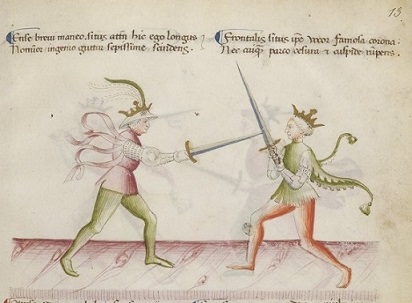 Ense brevi maneo. situs attn hic ego longus
ingenio guttur sepissime scindens.
Frontalis situs ipe vocor famosa corona.
Nec cuiqȝ parco cesura et cuspide rumpens.